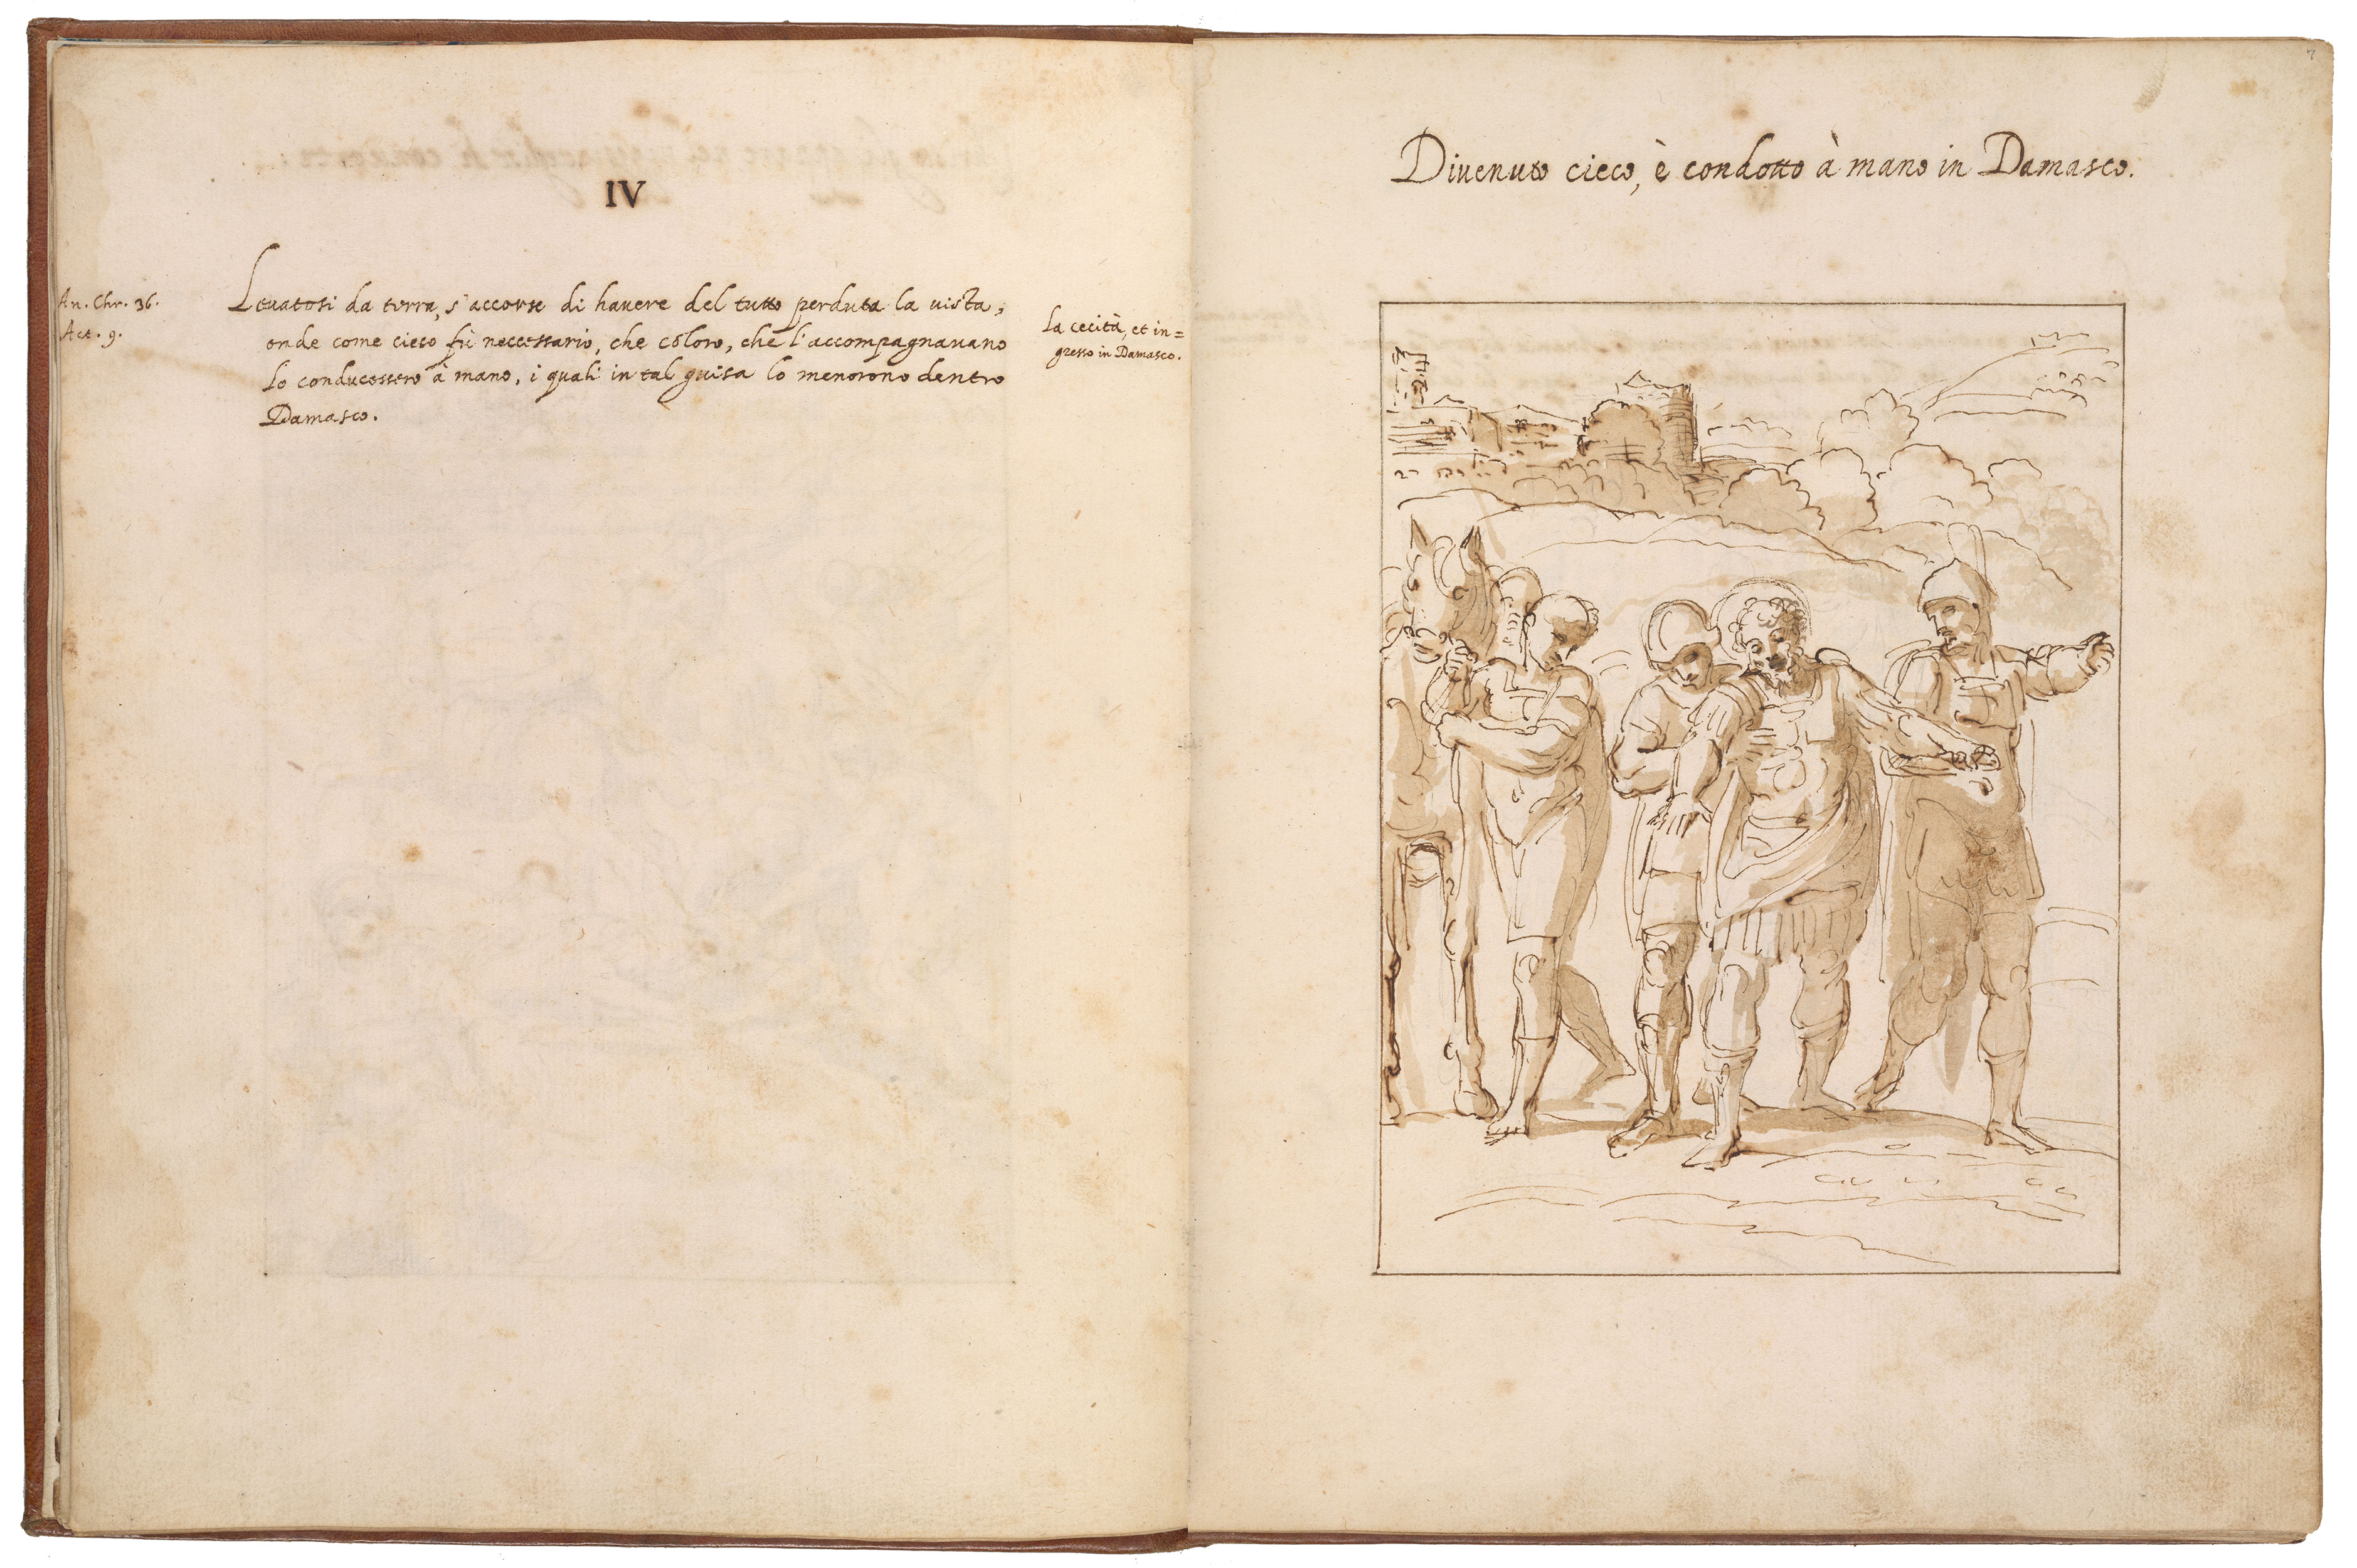 IV
An. Chr. 36.
Act. 9.
Leuatosi da terra, s'accorse di hauere del tutto perduta la uista,
onde come cieco fù necessario, che coloro, che l'accompagnauano
lo conducessero à mano, i quali in tal guisa lo menorono dentro
Damasco.
La cecità, et in=
gresso in Damasco.
7
Diuenuto cieco, è condotto à mano in Damasco.